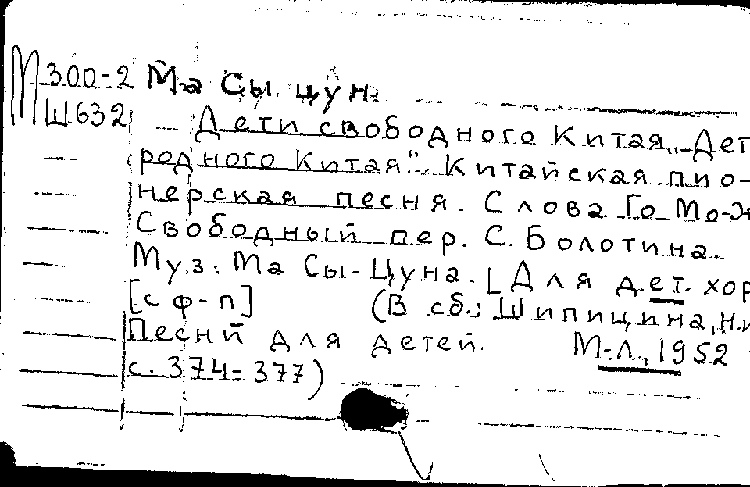 М 300-2 Ма Сы цун.
Ш632 Дети свободного Китая. „Дет
родного Китая". Китайская пио-
нерская песня. Слова Го Мо-Ж
Свободный пер. С. Болотина.
Муз. Ма Сы-Цуна. [Для дет. хор
[с ф-п] (В сб.: Шипицина, Н.И
Песни для детей. М-Л., 1952
с. 374-377)